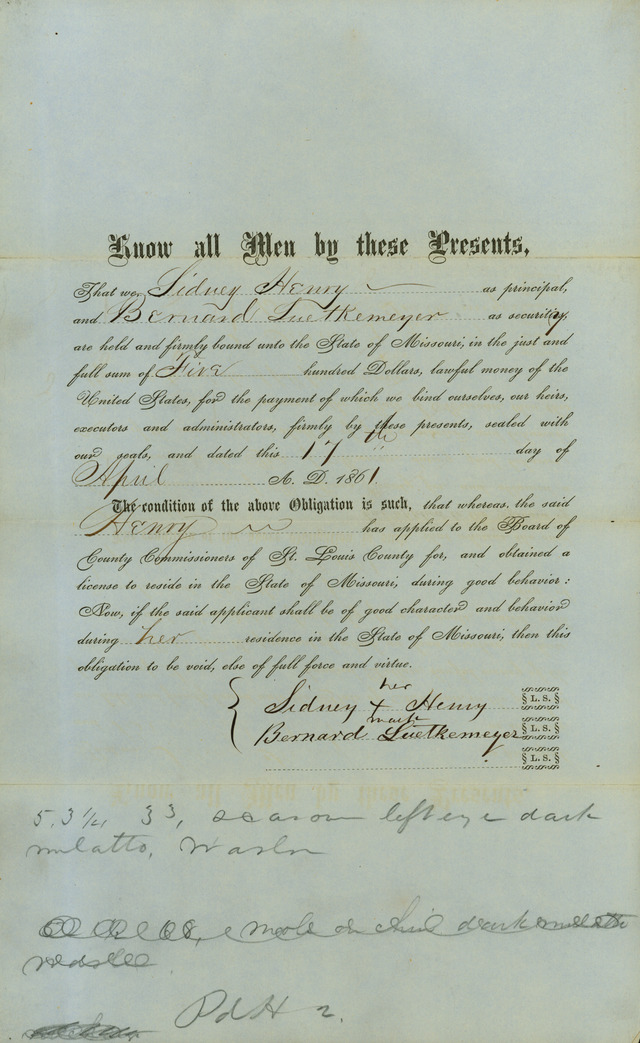 Know all Men by these Presents,
That we, Sidney Henry as principal,
and Bernard Luetkemeyer as security,
are held and firmly bound unto the State of Missouri, in the just and
full sum of Five hundred Dollars, lawful money of the
United States, for the payment of which we bind ourselves, our heirs,
executors and administrators, firmly by these presents, sealed with
our seals, and dated this 17th day of
April A. D. 1861.
The condition of the above Obligation is such, that whereas, the said
Henry has applied to the Board of
County Commissioners of St. Louis County for, and obtained a
license to reside in the State of Missouri, during good behavior:
Now, if the said applicant shall be of good character and behavior
during her residence in the State of Missouri, then this
obligation to be void, else of full force and virtue.
her
Sidney + Henry L. S.
mark
Bernard Luetkemeyer L. S.
L. S.
5, 3 1/4 33, scar on left eye dark
mulatto, Washr
68, mole on chin dark mulatto
Pd H 2.